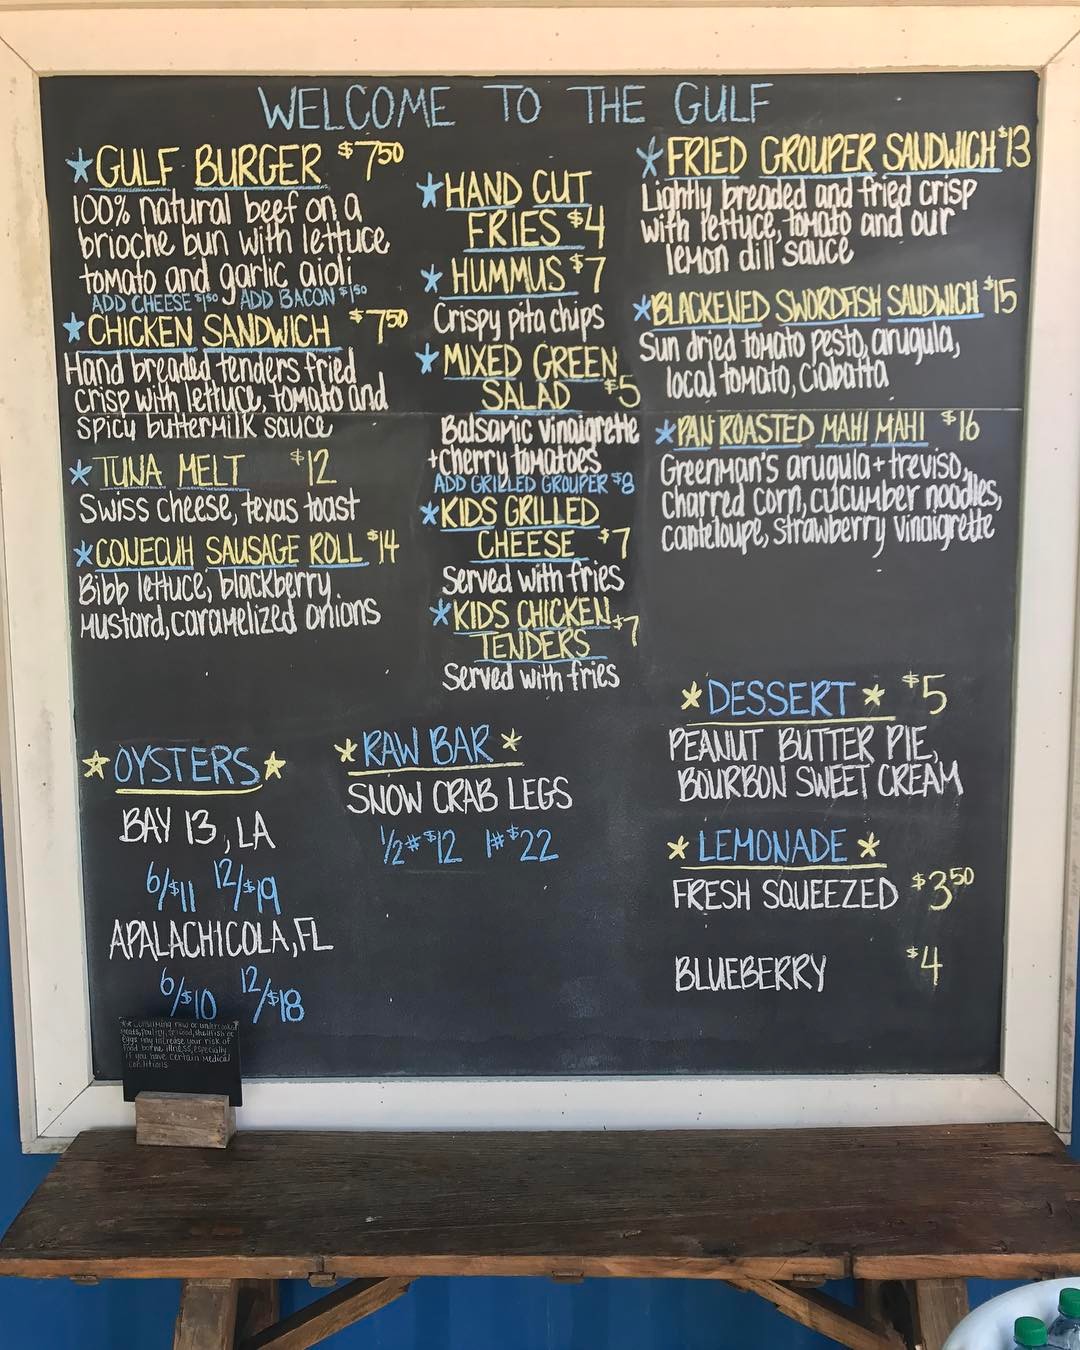 WELCOME TO THE GULF
★ GULF BURGER $750
100% natural beef on a
brioche bun with lettuce
tomato and garlic aioli
ADD CHEESE $150 ADD BACON $150
★ CHICKEN SANDWICH $750
Hand breaded tenders fried
crisp with lettuce, tomato and
spicy buttermilk sauce
★ TUNA MELT $12
Swiss cheese, texas toast
★ CONECUH SAUSAGE ROLL $14
Bibb lettuce, blackberry
mustard, caramelized onions
★ HAND CUT
FRIES $4
★ HUMMUS $7
Crispy pita chips
★ MIXED GREEN
SALAD $5
Balsamic vinaigrette
+cherry tomatoes
ADD GRILLED GROUPER $8
★ KIDS GRILLED
CHEESE $7
Served with fries
★ KIDS CHICKEN
TENDERS $7
Served with fries
★ FRIED GROUPER SANDWICH $13
Lightly breaded and fried crisp
with lettuce, tomato and our
lemon dill sauce
★ BLACKENED SWORDFISH SANDWICH $15
Sun dried tomato pesto, arugula,
local tomato, ciabatta
★ PAN ROASTED MAHI MAHI $16
Greenman's arugula + treviso,
charred corn, cucumber noodles,
canteloupe, strawberry vinaigrette
★ OYSTERS ★
BAY 13, LA
6/$11 12/$19
APALACHICOLA, FL
6/$10 12/$18
★ RAW BAR ★
SNOW CRAB LEGS
1/2# $12 1# $22
★ DESSERT ★ $5
PEANUT BUTTER PIE,
BOURBON SWEET CREAM
★ LEMONADE ★
FRESH SQUEEZED $350
BLUEBERRY $4
** Consuming raw or undercooked
meats, poultry, seafood, shellfish or
eggs may increase your risk of
food borne illness, especially
if you have certain medical
conditions